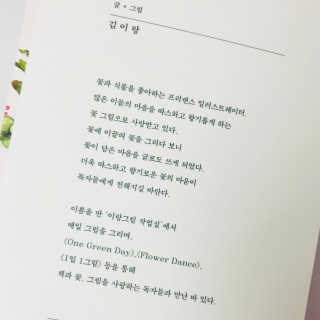 글 • 그림
김이랑
꽃과 식물을 좋아하는 프리랜스 일러스트레이터.
많은 이들의 마음을 따스하고 향기롭게 하는
꽃 그림으로 사랑받고 있다.
꽃에 이끌려 꽃을 그리다 보니
꽃이 담은 마음을 글로도 쓰게 되었다.
더욱 따스하고 향기로운 꽃의 마음이
독자들에게 전해지길 바란다.
이름을 딴 '이랑그림 작업실'에서
매일 그림을 그리며,
〈One Green Day〉, 〈Flower Dance〉,
〈1일 1그림〉 등을 통해
책과 꽃, 그림을 사랑하는 독자들과 만난 바 있다.